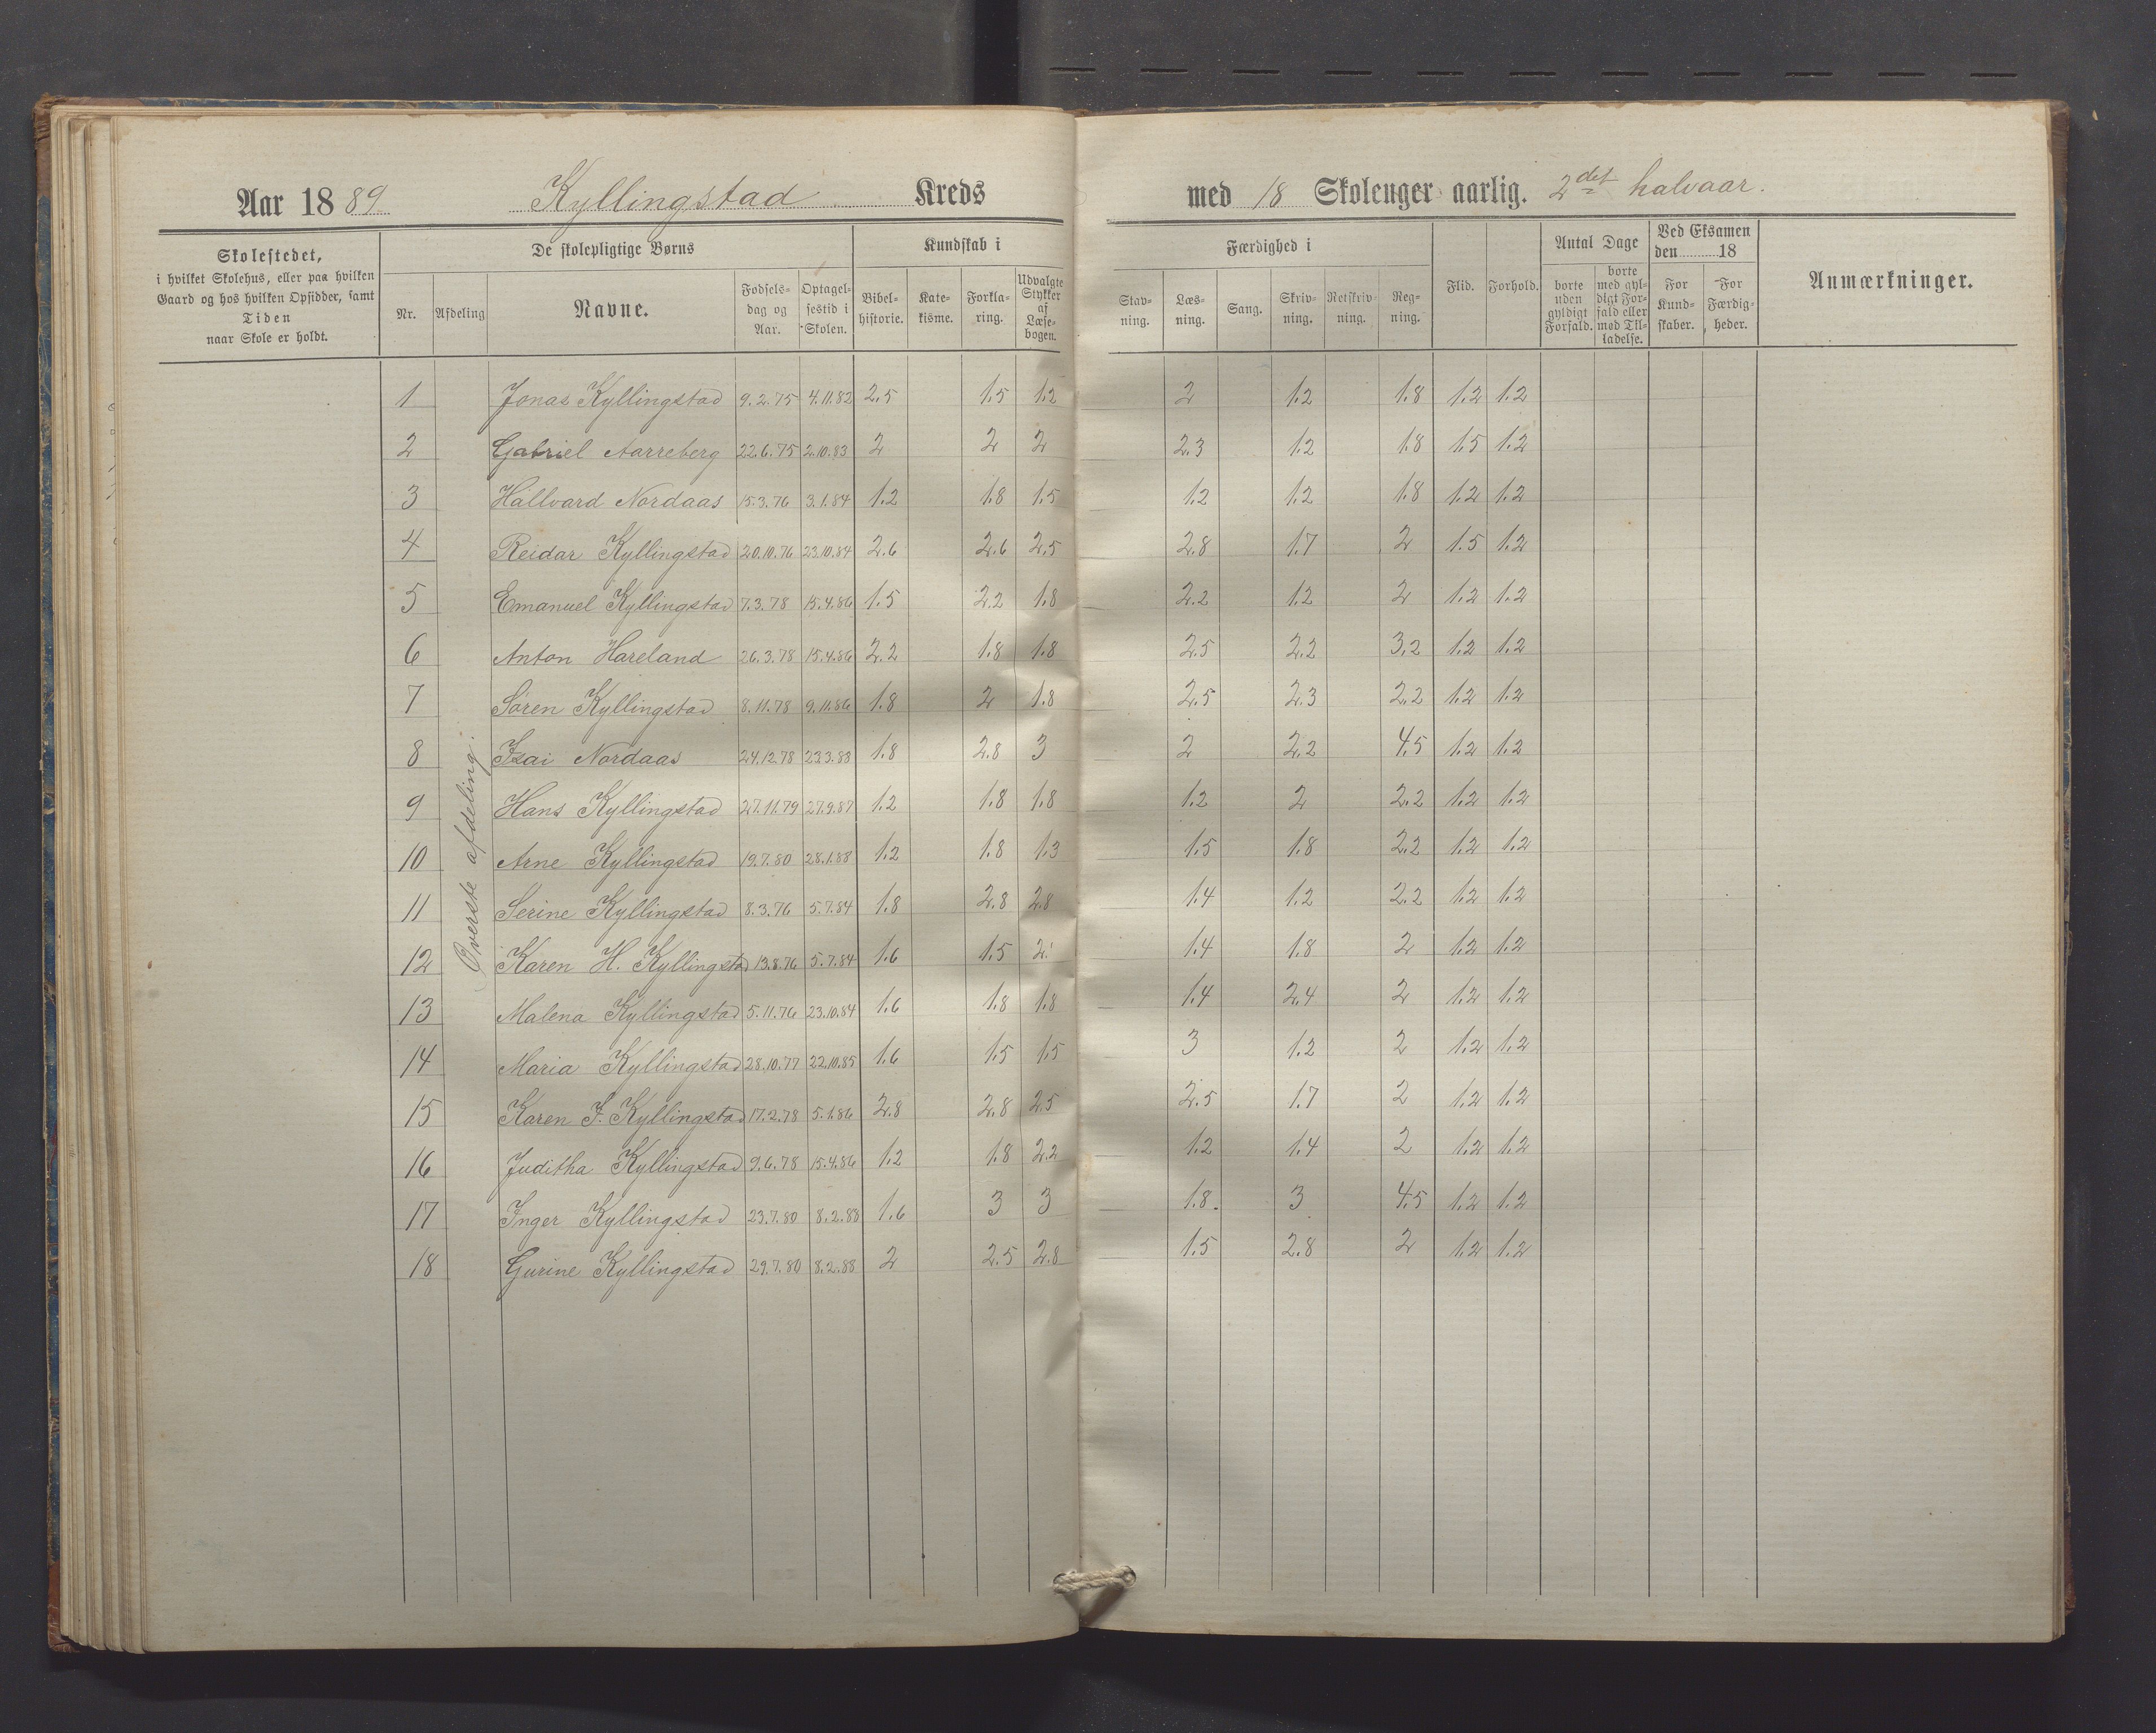 Aar 1889 Kyllingstad Kreds med 18 Skoleuger aarlig. 2det halvaar.
Skolestedet,
i hvilket Skolehus, eller paa hvilken
Gaard og hos hvilken Opsidder, samt
Tiden
naar Skole er holdt.
De skolepligtige Børns
Nr.
Afdeling
Navne.
Fødsels-
dag og
Aar.
Optagel-
sestid i
Skolen.
Kundskab i
Bibel-
historie.
Kate-
kisme.
Forkla-
ring.
Udvalgte
Stykker
af
Læse-
bogen.
Færdighed i
Stav-
ning.
Læs-
ning.
Sang.
Skriv-
ning.
Retskriv-
ning.
Reg-
ning.
Flid.
Forhold.
Antal Dage
borte
uden
gyldigt
Forfald.
borte
med gyl-
digt For-
fald eller
med Til-
ladelse.
Ved Eksamen
den 18
For
Kund-
skaber.
For
Færdig-
heder.
Anmærkninger.
Øverste afdeling.
1 Jonas Kyllingstad 9.2.75 4.11.82 2.5 1.5 1.2 2 1.2 1.8 1.2 1.2
2 Gabriel Aarreberg 22.6.75 2.10.83 2 2 2 2.3 1.2 1.8 1.5 1.2
3 Hallvard Nordaas 15.3.76 3.1.84 1.2 1.8 1.5 1.2 1.2 1.8 1.2 1.2
4 Reidar Kyllingstad 20.10.76 23.10.84 2.6 2.6 2.5 2.8 1.7 2 1.5 1.2
5 Emanuel Kyllingstad 7.3.78 15.4.86 1.5 2.2 1.8 2.2 1.2 2 1.2 1.2
6 Anton Hareland 26.3.78 15.4.86 2.2 1.8 1.8 2.5 2.2 3.2 1.2 1.2
7 Sören Kyllingstad 8.11.78 9.11.86 1.8 2 1.8 2.5 2.3 2.2 1.2 1.2
8 Isai Nordaas 24.12.78 23.3.88 1.8 2.8 3 2 2.2 4.5 1.2 1.2
9 Hans Kyllingstad 27.11.79 27.9.87 1.2 1.8 1.8 1.2 2 2.2 1.2 1.2
10 Arne Kyllingstad 19.7.80 28.1.88 1.2 1.8 1.3 1.5 1.8 2.2 1.2 1.2
11 Serine Kyllingstad 8.3.76 5.7.84 1.8 2.8 2.8 1.4 1.2 2.2 1.2 1.2
12 Karen H. Kyllingstad 13.8.76 5.7.84 1.6 1.5 2. 1.4 1.8 2 1.2 1.2
13 Malena Kyllingstad 5.11.76 23.10.84 1.6 1.8 1.8 1.4 2.4 2 1.2 1.2
14 Maria Kyllingstad 28.10.77 22.10.85 1.6 1.5 1.5 3 1.2 2 1.2 1.2
15 Karen I. Kyllingstad 17.2.78 5.1.86 2.8 2.8 2.5 2.5 1.7 2 1.2 1.2
16 Juditha Kyllingstad 9.6.78 15.4.86 1.2 1.8 2.2 1.2 1.4 2 1.2 1.2
17 Inger Kyllingstad 23.7.80 8.2.88 1.6 3 3 1.8. 3 4.5 1.2 1.2
18 Gurine Kyllingstad 29.7.80 8.2.88 2 2.5 2.8 1.5 2.8 2 1.2 1.2